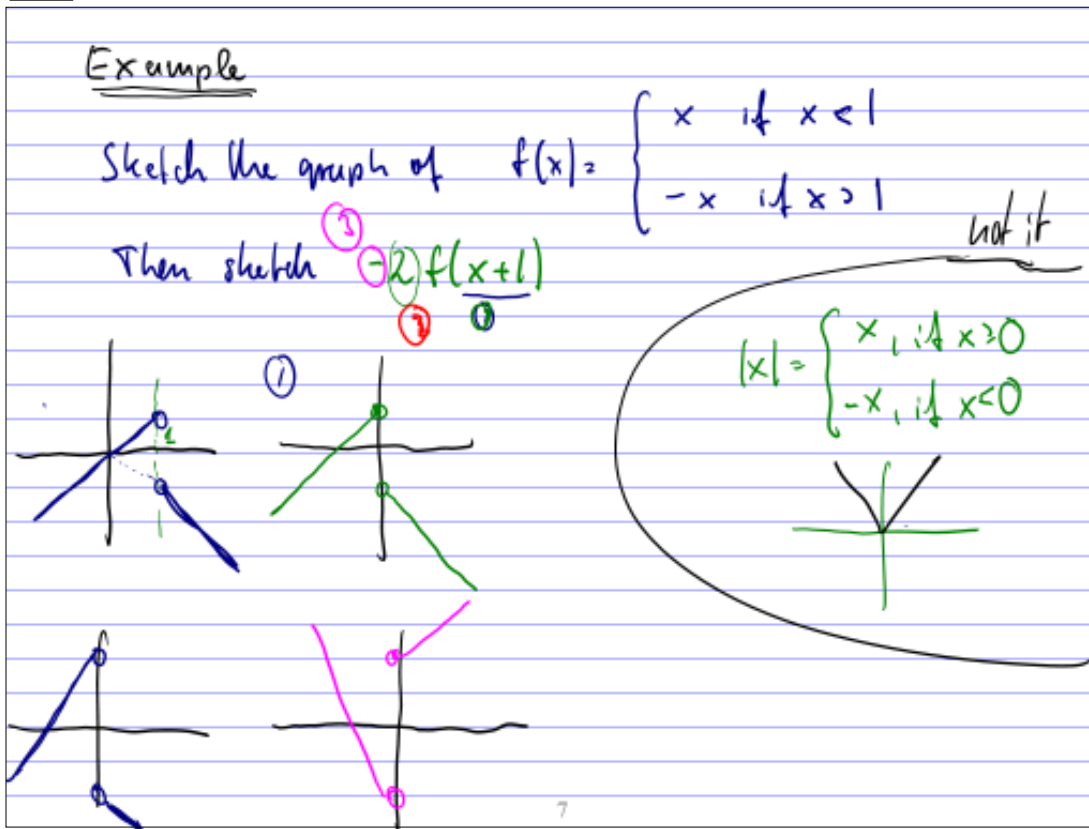 Example
Sketch the graph of f(x) = { x if x < 1
-x if x > 1
not it
③
Then sketch -2 f(x+1)
② ①
|x| = { x, if x ≥ 0
-x, if x < 0
①
1
7